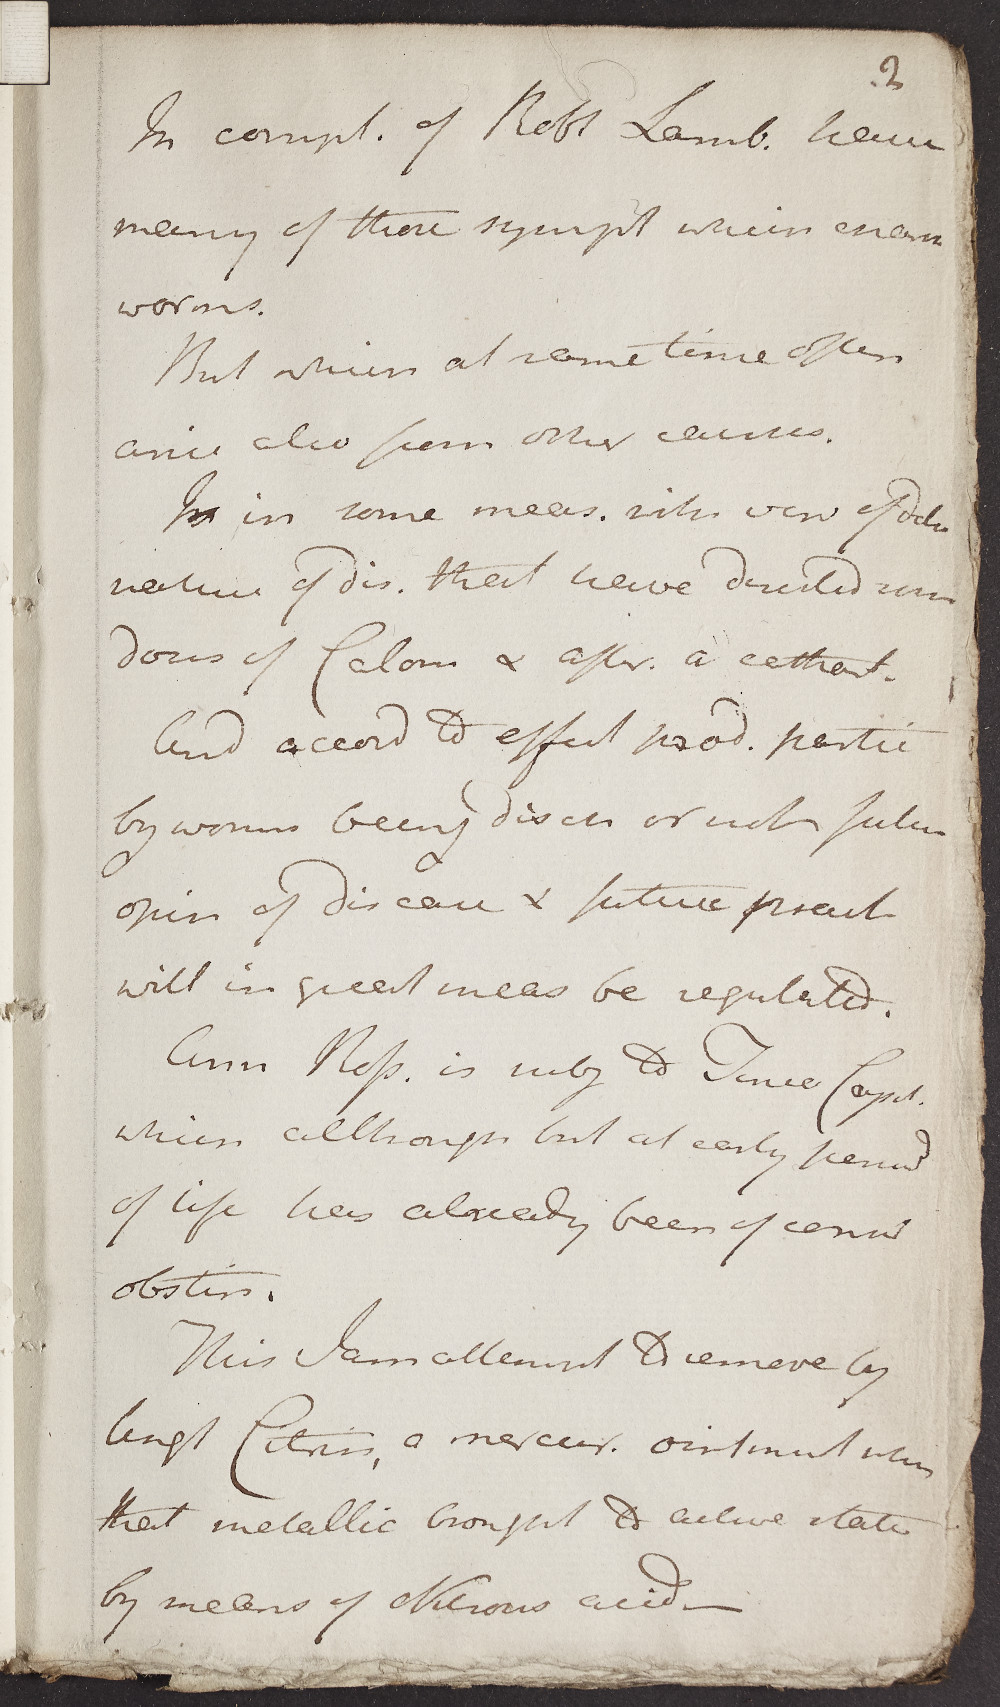 2
In compl. of Robt Lamb. have
many of those sympt which
worms.
But which at same time often
arise also from other causes.
in some meas. with view of
nature of dis. that have directed some
doses of Calom & after. a cathart.
And accord to effect prod. partic
by worms being disch or not future
opin of disease & future pract
will in great meas be regulated.
Ann Ross. is subj to Tinea Capit.
which allthough but at early period
of life has already been of consid
obstin.
This I am attempt to remove by
Ungt Citrin, a mercur. ointment when
that metallic brought to active state
by means of Nitrous acid—